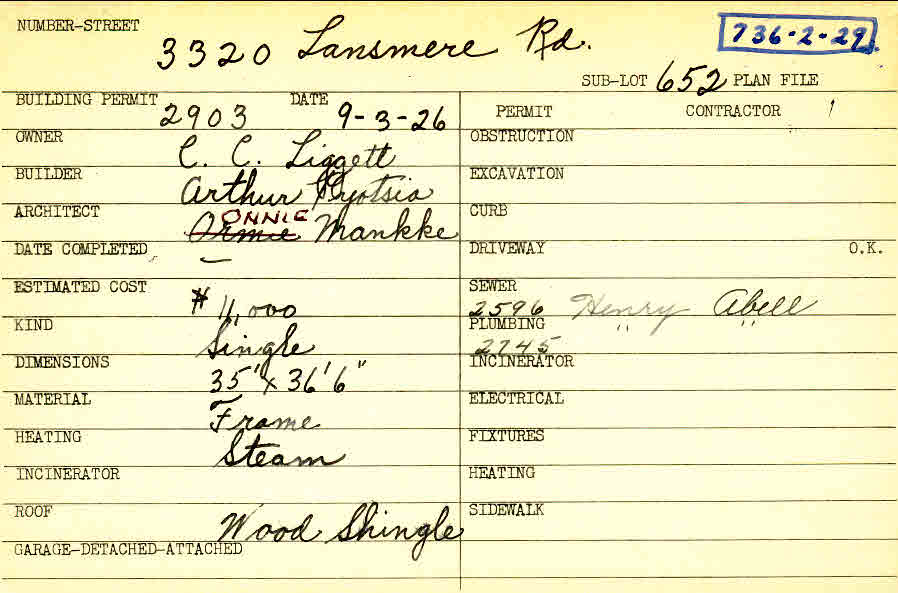 NUMBER-STREET 3320 Lansmere Rd. 736-2-29
SUB-LOT 652 PLAN FILE
BUILDING PERMIT 2903 DATE 9-3-26
PERMIT CONTRACTOR
OWNER C. C. Liggett
OBSTRUCTION
BUILDER Arthur
EXCAVATION
ARCHITECT Ormie ONNIE Mankke
CURB
DATE COMPLETED —
DRIVEWAY O.K.
ESTIMATED COST $11,000
SEWER 2596 Henry Abell
KIND Single
PLUMBING 2745 " "
DIMENSIONS 35' x 36'6"
INCINERATOR
MATERIAL Frame
ELECTRICAL
HEATING Steam
FIXTURES
INCINERATOR
HEATING
ROOF Wood Shingle
SIDEWALK
GARAGE-DETACHED-ATTACHED